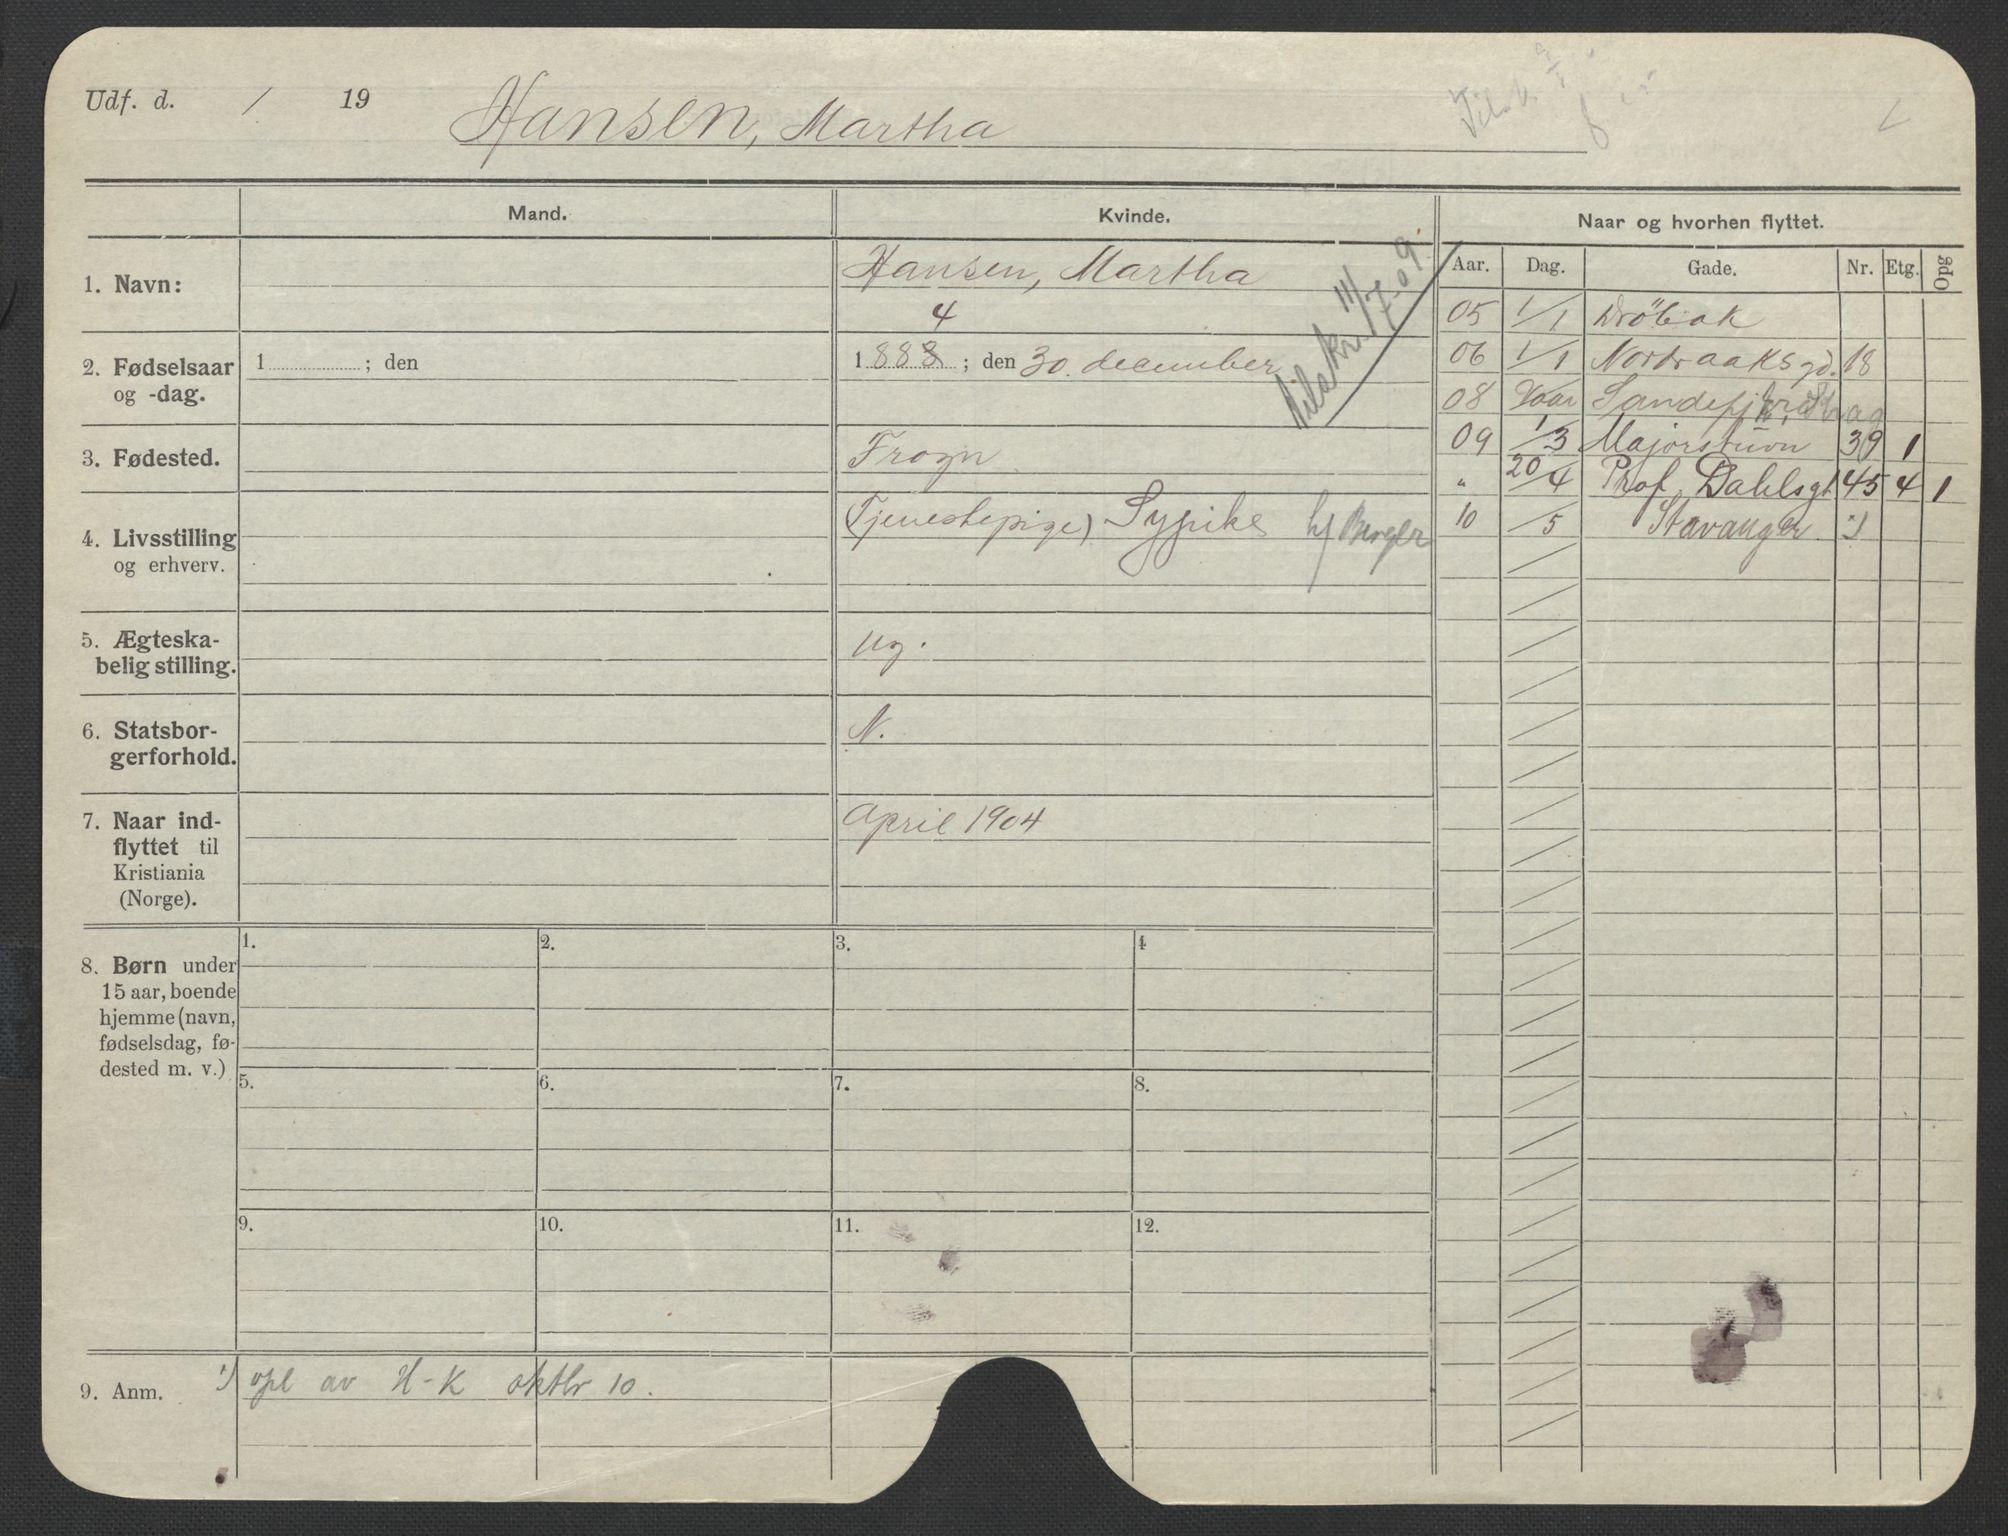 Udf. d. / 19
Hansen, Martha
Mand.
Kvinde.
Naar og hvorhen flyttet.
Aar. Dag. Gade. Nr. Etg. Opg
1. Navn:
Hansen, Martha
4
2. Fødselsaar
og -dag.
1 ; den
1888 ; den 30. december
11/7-09.
3. Fødested.
Frogn
4. Livsstilling
og erhverv.
(Tjenestepige) Sypike h/ Berger
5. Ægteska-
belig stilling.
ug.
6. Statsbor-
gerforhold.
N.
7. Naar ind-
flyttet til
Kristiania
(Norge).
April 1904
05 1/1 Drøbak
06 1/1 Nordraaksgd. 18
08 Vaar Sandefjord
09 1/3 Majorstuvn 39 1
" 20/4 Prof. Dahlsgt 45 4 1
10 /5 Stavanger. *)
8. Børn under
15 aar, boende
hjemme (navn,
fødselsdag, fø-
dested m. v.)
1. 2. 3. 4
5. 6. 7. 8.
9. 10. 11. 12.
9. Anm.
*) opl av H-K oktbr 10.